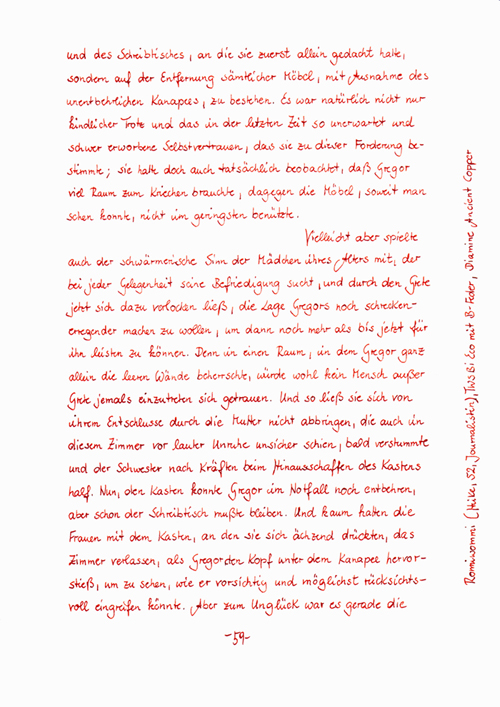 und des Schreibtisches, an die sie zuerst allein gedacht hatte,
sondern auf der Entfernung sämtlicher Möbel, mit Ausnahme des
unentbehrlichen Kanapees, zu bestehen. Es war natürlich nicht nur
kindlicher Trotz und das in der letzten Zeit so unerwartet und
schwer erworbene Selbstvertrauen, das sie zu dieser Forderung be-
stimmte; sie hatte doch auch tatsächlich beobachtet, daß Gregor
viel Raum zum Kriechen brauchte, dagegen die Möbel, soweit man
sehen konnte, nicht im geringsten benützte.
Vielleicht aber spielte
auch der schwärmerische Sinn der Mädchen ihres Alters mit, der
bei jeder Gelegenheit seine Befriedigung sucht, und durch den Grete
jetzt sich dazu verlocken ließ, die Lage Gregors noch schrecken-
erregender machen zu wollen, um dann noch mehr als bis jetzt für
ihn leisten zu können. Denn in einen Raum, in dem Gregor ganz
allein die leeren Wände beherrschte, würde wohl kein Mensch außer
Grete jemals einzutreten sich getrauen. Und so ließ sie sich von
ihrem Entschlusse durch die Mutter nicht abbringen, die auch in
diesem Zimmer vor lauter Unruhe unsicher schien, bald verstummte
und der Schwester nach Kräften beim Hinausschaffen des Kastens
half. Nun, den Kasten konnte Gregor im Notfall noch entbehren,
aber schon der Schreibtisch mußte bleiben. Und kaum hatten die
Frauen mit dem Kasten, an den sie sich ächzend drückten, das
Zimmer verlassen, als Gregor den Kopf unter dem Kanapee hervor-
stieß, um zu sehen, wie er vorsichtig und möglichst rücksichts-
voll eingreifen könnte. Aber zum Unglück war es gerade die
-59-
Romiwomi (Heike, 52, Journalistin), TWSBI Eco mit B-Feder, Diamine Ancient Copper